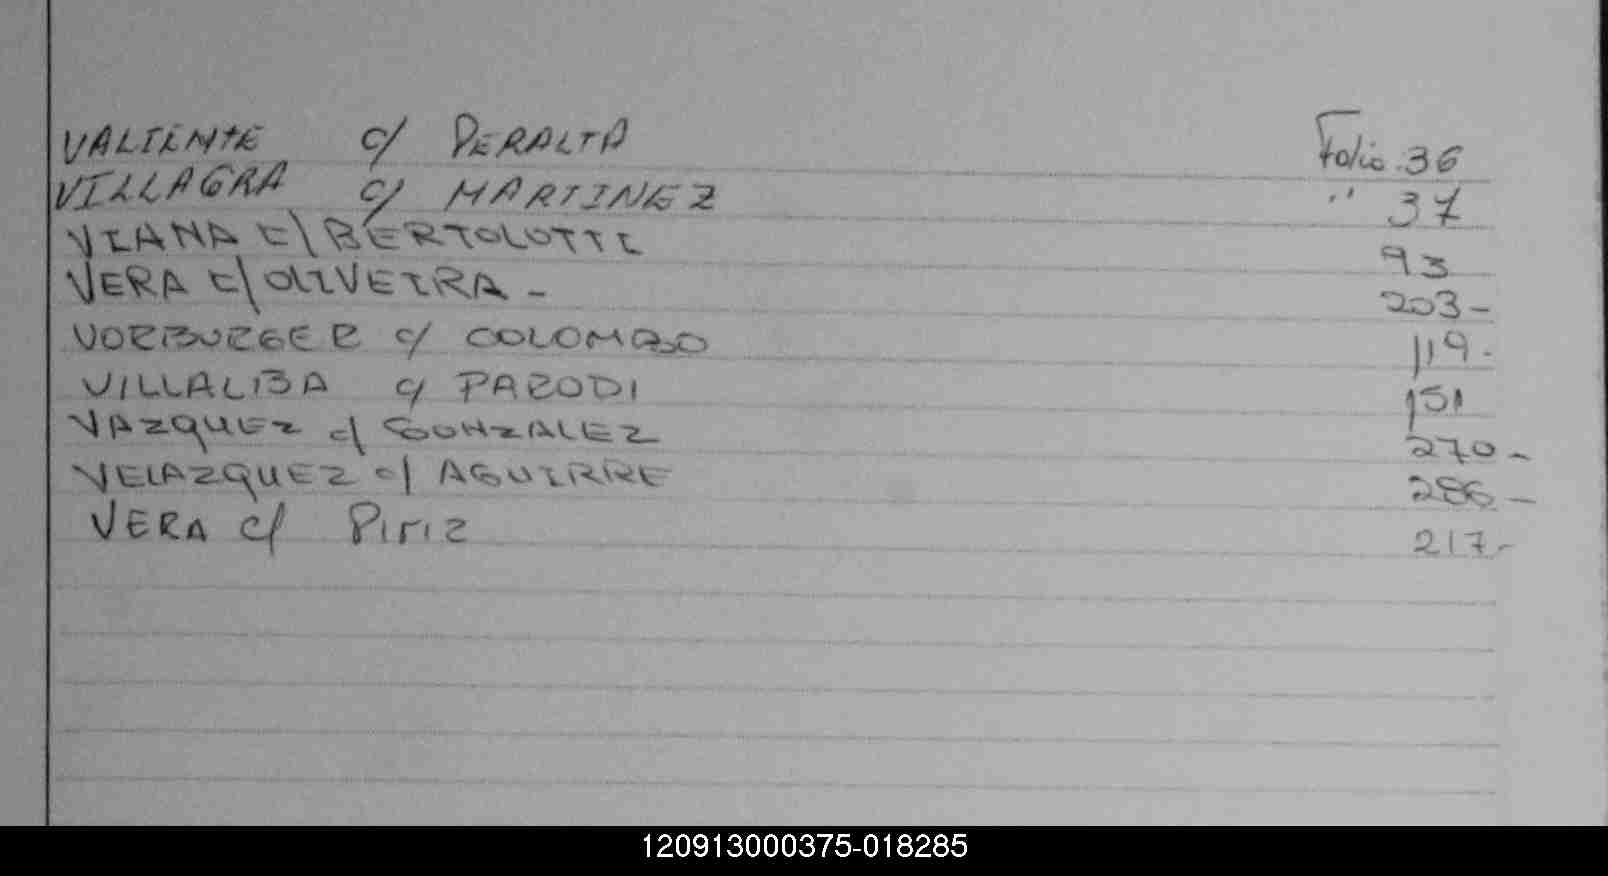 VALIENTE c/ PERALTA Folio 36
VILLAGRA c/ MARTINEZ " 37
VIANA C/ BERTOLOTTI 93
VERA C/ OLIVEIRA - 203-
VORBURGER c/ COLOMBO 119.
VILLALBA c/ PARODI 151
VAZQUEZ c/ GONZALEZ 270-
VELAZQUEZ c/ AGUIRRE 286-
VERA c/ Piriz 217-
120913000375-018285